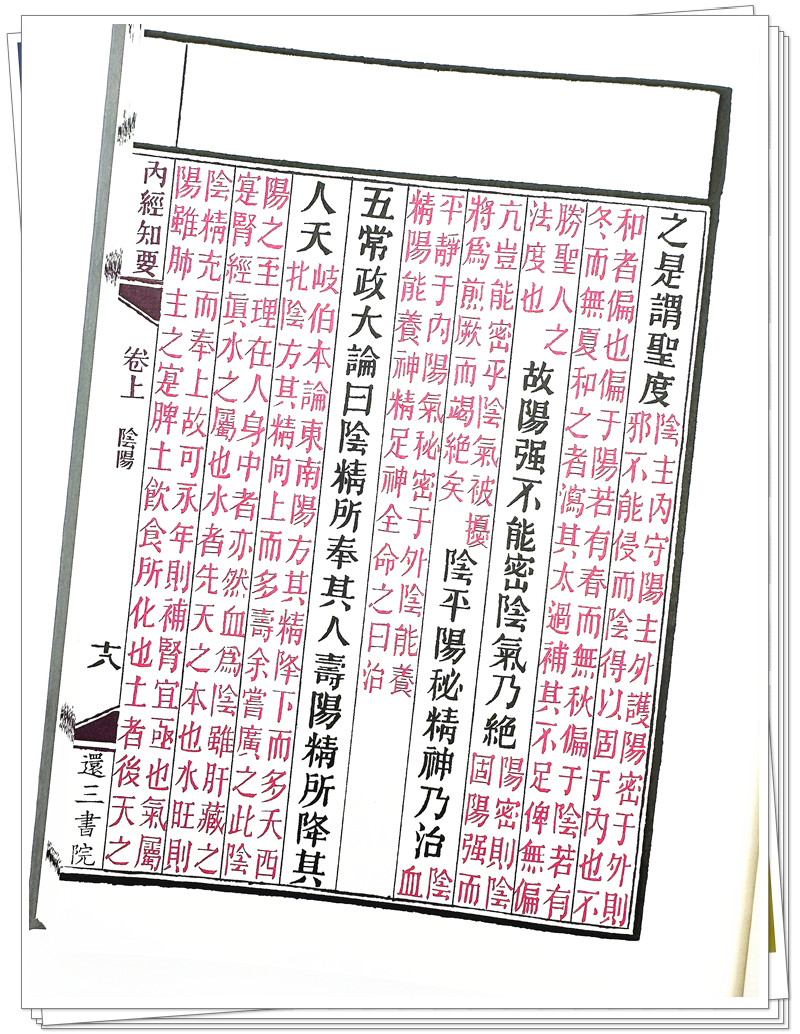 之是謂聖度
陰主內守陽主外護陽密于外則
邪不能侵而陰得以固于內也不
和者偏也偏于陽若有春而無秋偏于陰若有
冬而無夏和之者瀉其太過補其不足俾無偏
勝聖人之
法度也
故陽强不能密陰氣乃絶
陽密則陰
固陽强而
亢豈能密乎陰氣被擾
將爲煎厥而竭絶矣
陰平陽秘精神乃治
陰
血
平靜于內陽氣秘密于外陰能養
精陽能養神精足神全命之曰治
五常政大論曰陰精所奉其人壽陽精所降其
人夭
岐伯本論東南陽方其精降下而多夭西
北陰方其精向上而多壽余嘗廣之此陰
陽之至理在人身中者亦然血爲陰雖肝藏之
寔腎經眞水之屬也水者先天之本也水旺則
陰精充而奉上故可永年則補腎宜亟也氣屬
陽雖肺主之寔脾土飲食所化也土者後天之
內經知要
卷上
陰陽
十八
還三書院